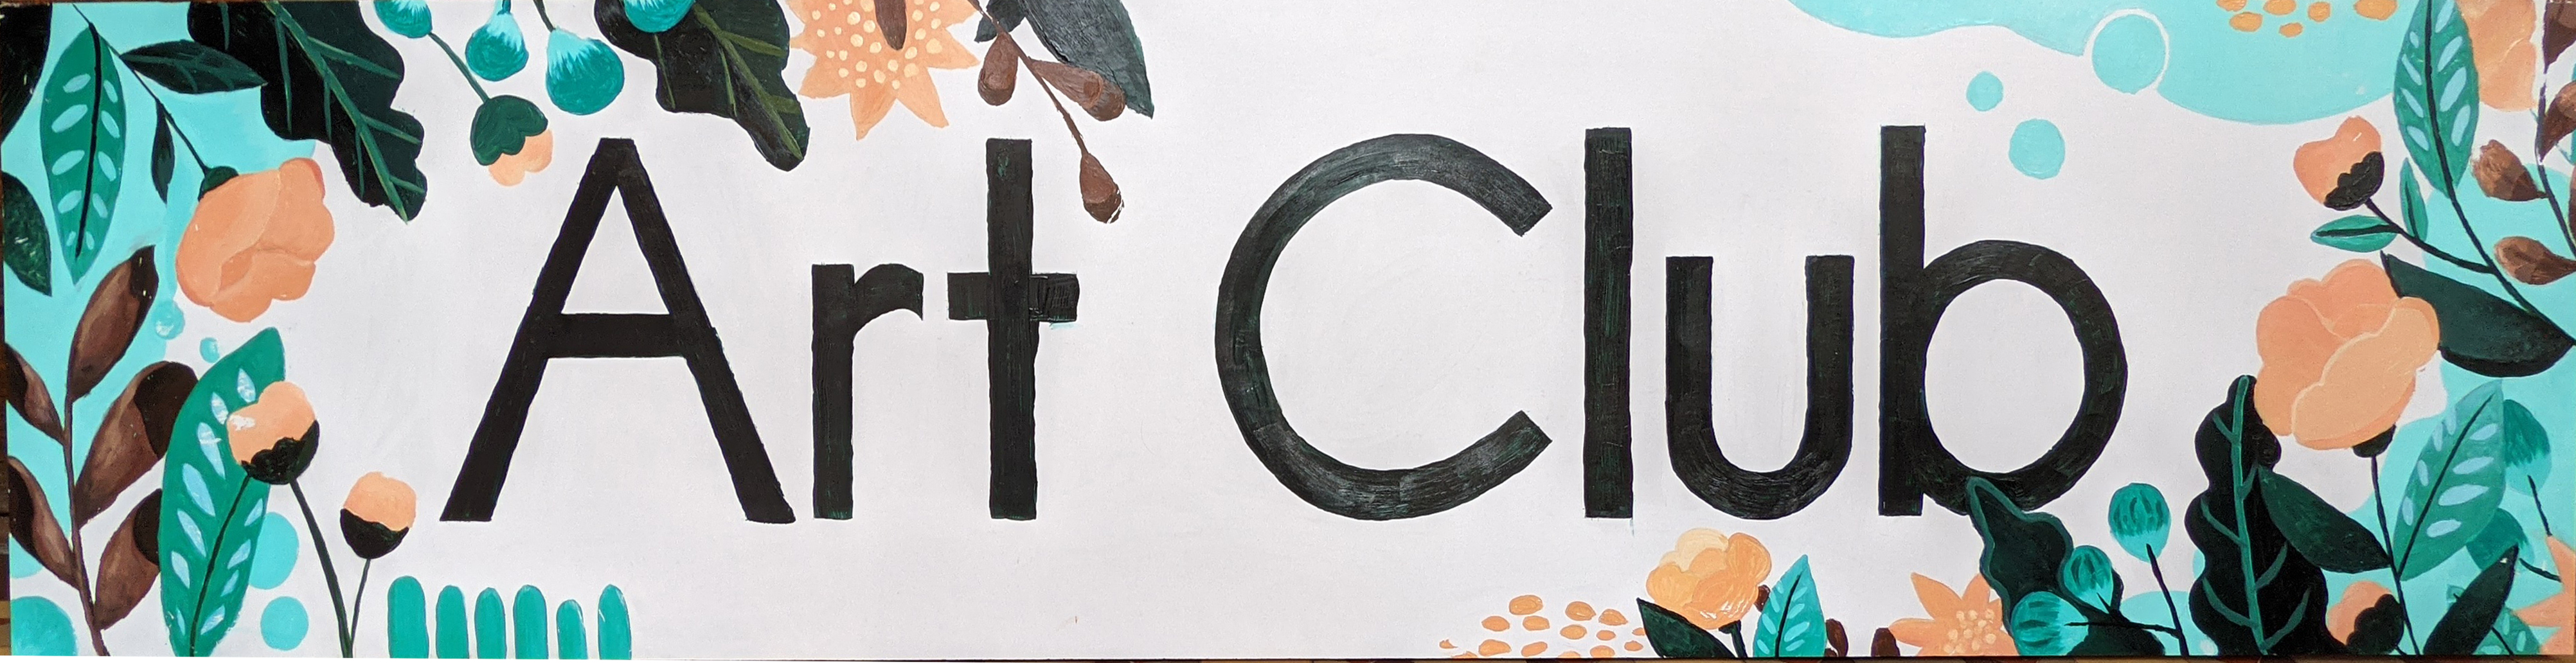 Art Club